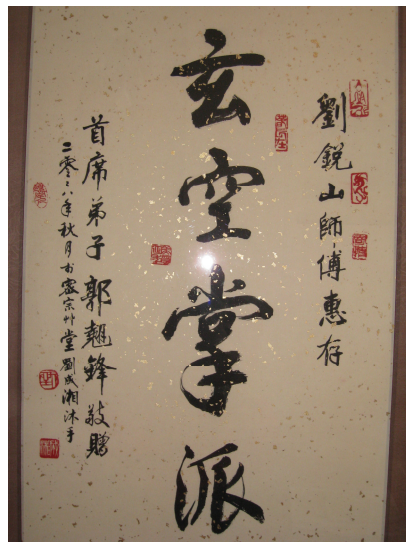 劉銳山師傅惠存
玄空掌派
首席弟子郭翹鋒敬贈
二零零八年秋月於密宗草堂劉成湘沐手